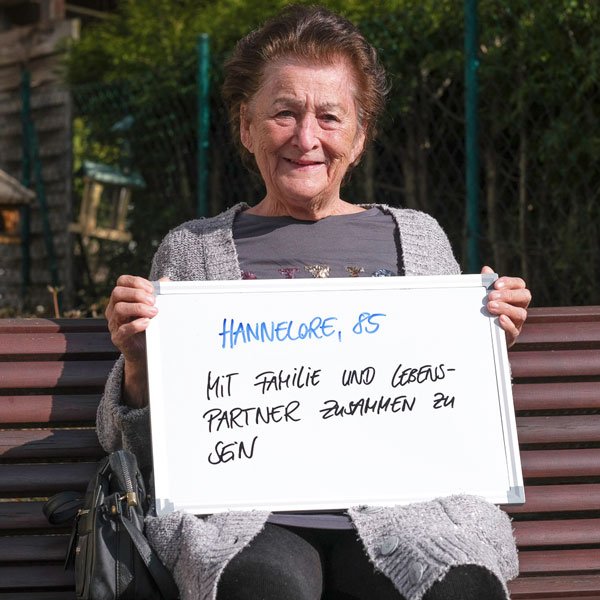 HANNELORE, 85
MIT FAMILIE UND LEBENS-
PARTNER ZUSAMMEN ZU
SEIN